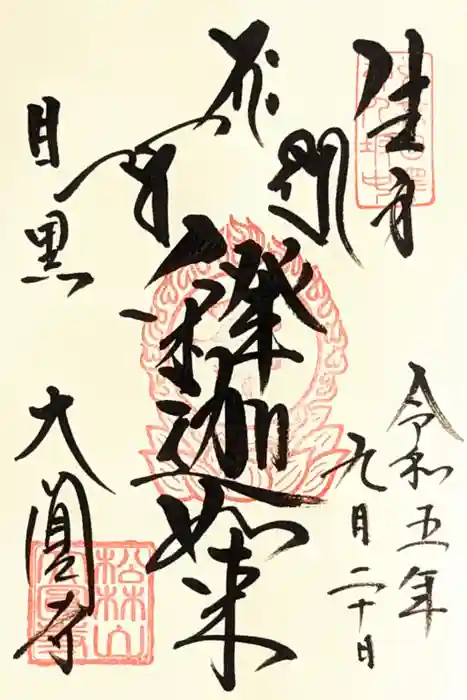 生身
令和五年
九月二十日
釋迦如来
目黒
大圓寺
松林山
大圓寺